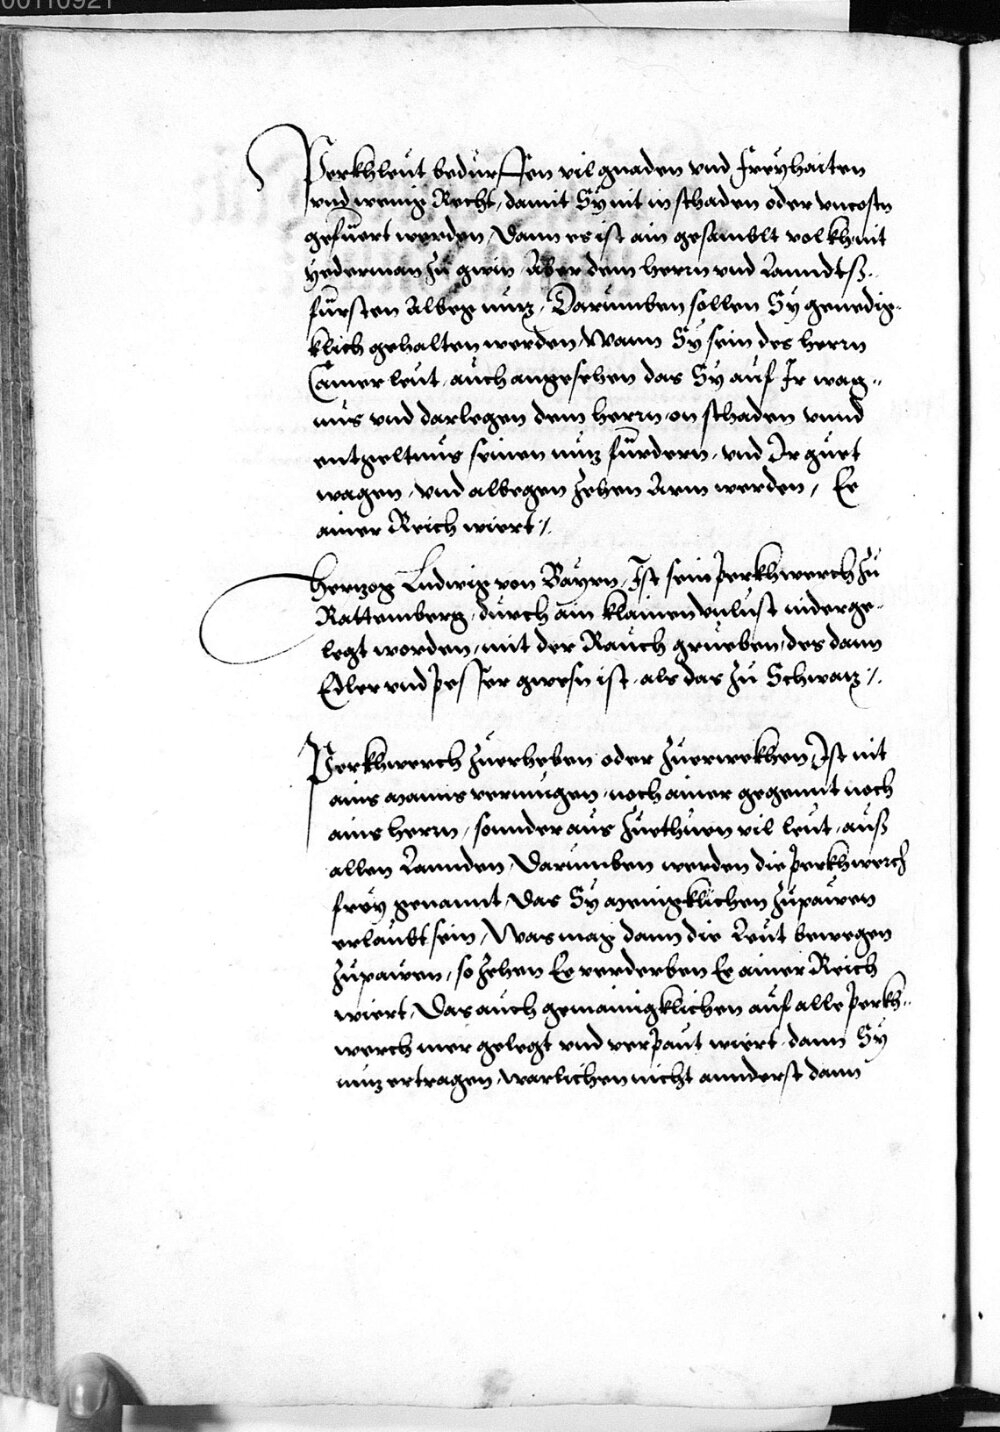 00110921
Perkhleut bedürffen vil gnaden vnd freyhaiten
vnd wenig Recht, damit Sy nit in schaden oder vncostn
gefüert werden, Dann es ist ain gesamblt volkh mit
yederman zu gwin, Aber dem herrn vnd Lanndtß-
fürsten Albeg nutz, Darumben sollen Sy genedig-
klich gehalten werden, Wann Sy sein des herrn
Camer leut, auch angesehen das Sy auf Ir wag-
nus vnd darlegen dem herrn, on schaden vnnd
entgeltnus seinen nutz fürdern, vnd Ir guet
wagen, vnd albegen zehen Arm werden, Ee
ainer Reich wiert /.
Hertzog Ludwig von Bayrn, Ist sein perkhwerch zu
Rattemberg, durch ain klainen vnlust niderge-
legt worden, mit der Rauch grueben, des dann
Edler vnd pesser gwesn ist, als das zu Schwatz /.
Perkhwerch zuerheben oder zuerwekhen, Ist nit
ains manns vermugen, noch ainer gegennt noch
ains herrn, sonnder aus zuethuen vil leut, auß
allen Lannden, Darumben werden die perkhwerch
frey genannt, Das Sy menigklichen zupawen
erlaubt sein, Was mag dann die Leut bewegen
zupawen, so zehen Ee verderben Ee ainer Reich
wiert, Das auch gemainigklichen auf alle perkh-
werch mer gelegt vnd verpaut wiert, dann Sy
nutz ertragen, warlichen nicht annderst dann